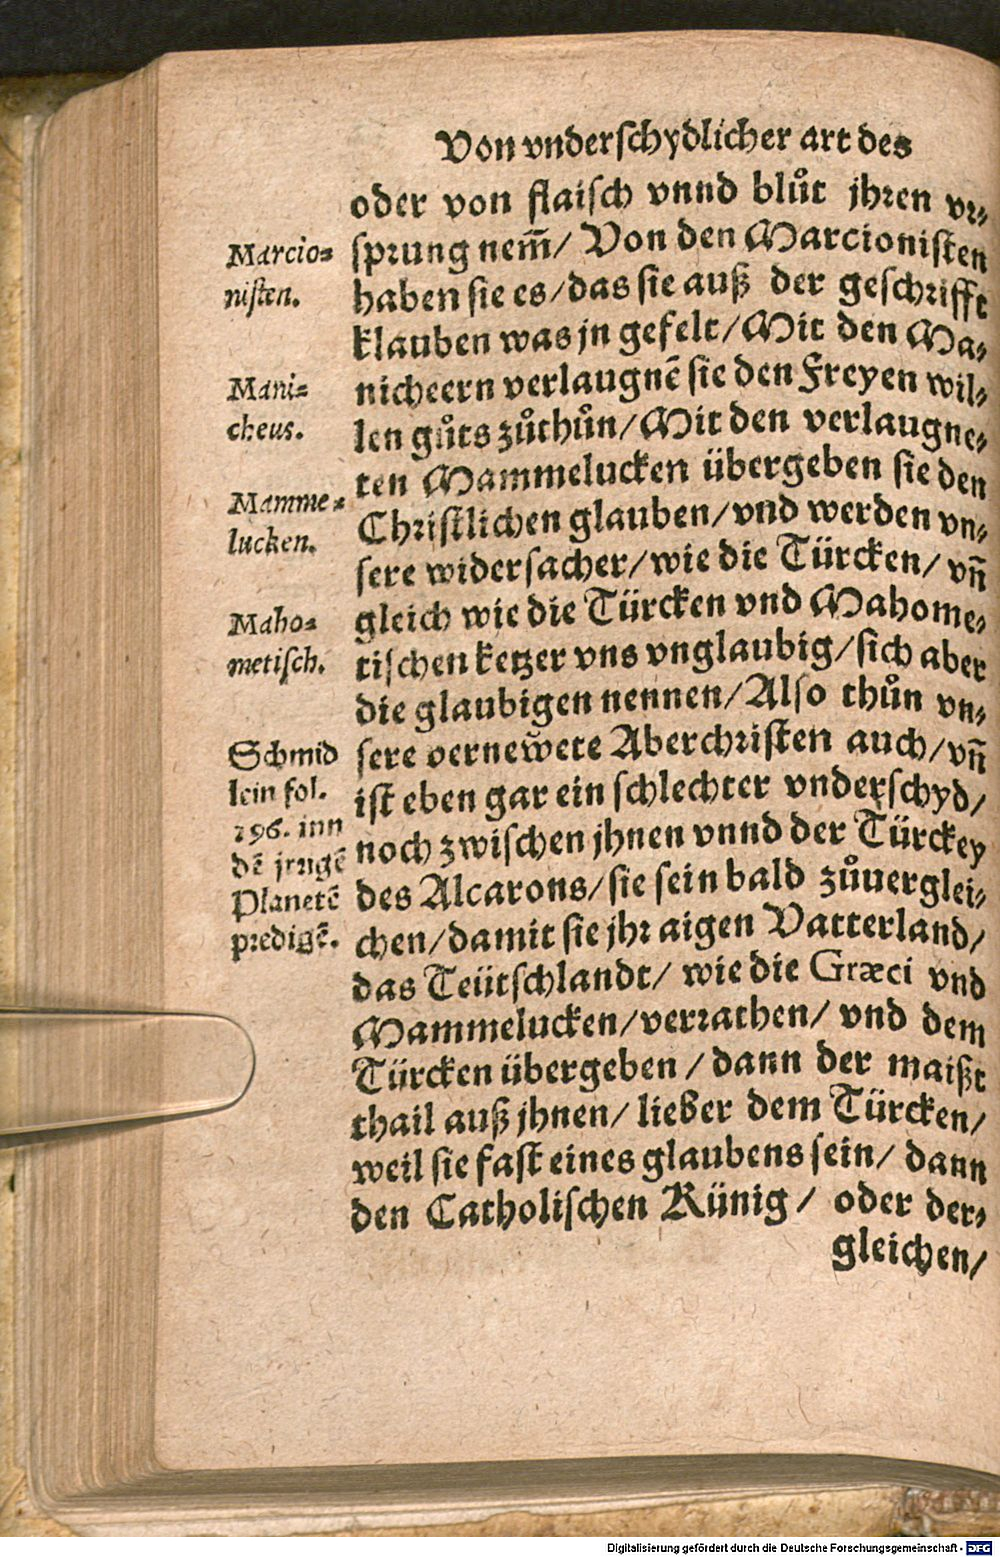 Von vnderschydlicher art des
oder von flaisch vnnd blůt jhren vr⸗
sprung nem̃/ Von den Marcionisten
haben sie es/das sie auß der geschrifft
klauben was jn gefelt/Mit den Ma⸗
nicheern verlaugnẽ sie den Freyen wil⸗
len gůts zůthůn/Mit den verlaugne⸗
ten Mammelucken übergeben sie den
Christlichen glauben/vnd werden vn⸗
sere widersacher/wie die Türcken/ vñ
gleich wie die Türcken vnd Mahome⸗
tischen ketzer vns vnglaubig/sich aber
die glaubigen nennen/Also thůn vn⸗
sere vernewete Aberchristen auch/vñ
ist eben gar ein schlechter vnderschyd/
noch zwischen jhnen vnnd der Türckey
des Alcarons/sie sein bald zůuerglei⸗
chen/damit sie jhr aigen Vatterland/
das Teütschlandt/ wie die Græci vnd
Mammelucken/verrathen/ vnd dem
Türcken übergeben/ dann der maißt
thail auß jhnen/ lieber dem Türcken/
weil sie fast eines glaubens sein/ dann
den Catholischen Künig/ oder der⸗
gleichen/
Marcio⸗
nisten.
Mani⸗
cheus.
Mamme⸗
lucken.
Maho⸗
metisch.
Schmid
lein fol.
196. inn
dẽ jrrigẽ
Planetẽ
predigẽ.
Digitalisierung gefördert durch die Deutsche Forschungsgemeinschaft - DFG